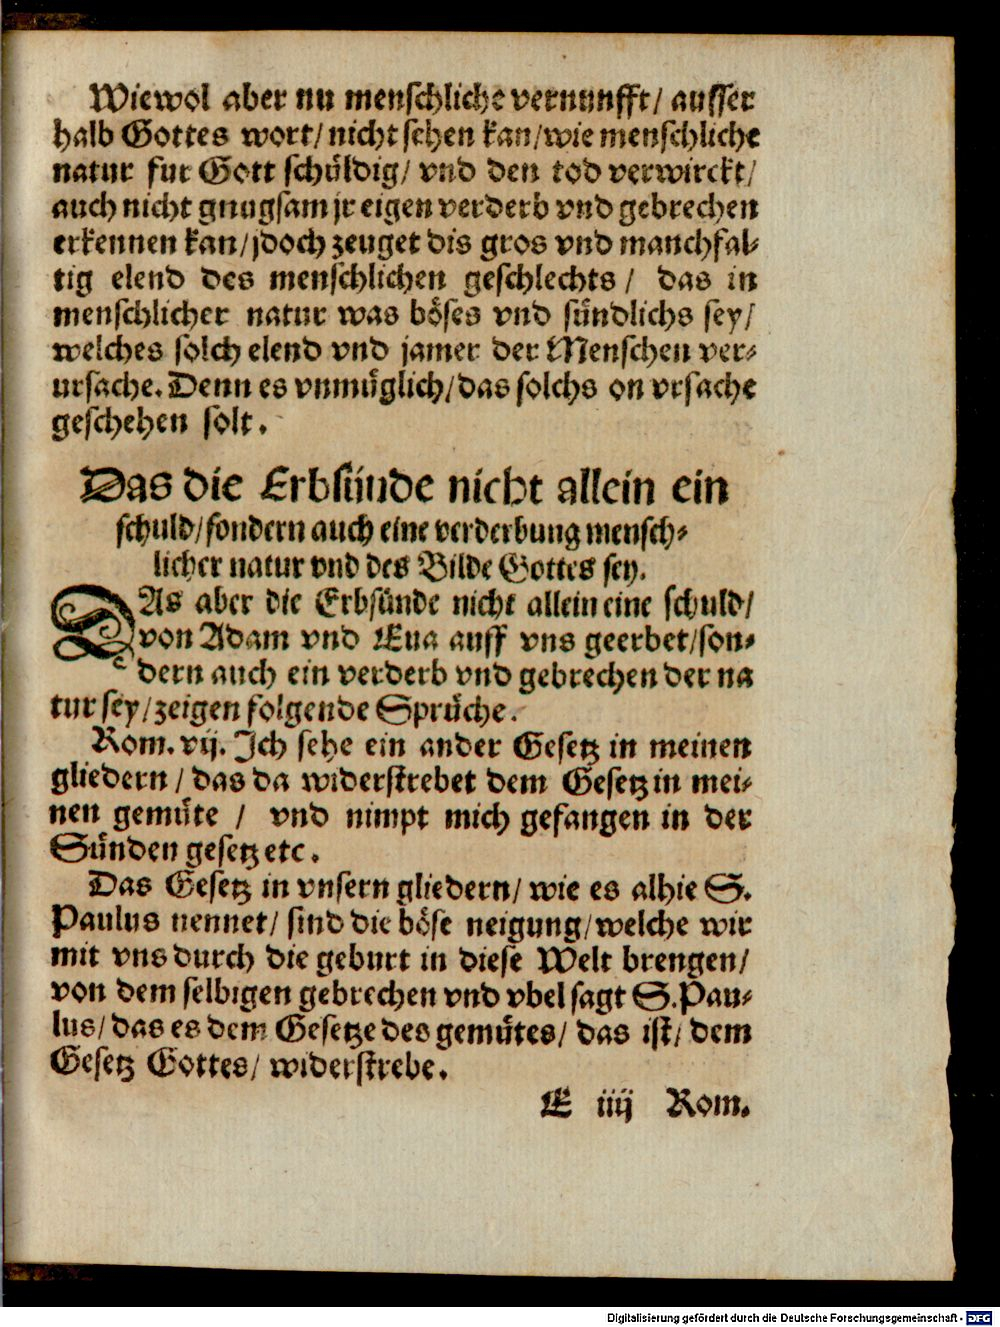 Wiewol aber nu menschliche vernunfft/ ausser
halb Gottes wort/ nicht sehen kan/ wie menschliche
natur fur Gott schüldig/ vnd den tod verwirckt/
auch nicht gnugsam jr eigen verderb vnd gebrechen
erkennen kan/ jdoch zeuget dis gros vnd manchfal-
tig elend des menschlichen geschlechts/ das in
menschlicher natur was böses vnd sündlichs sey/
welches solch elend vnd jamer der Menschen ver-
ursache. Denn es vnmüglich/ das solchs on vrsache
geschehen solt.
Das die Erbsünde nicht allein ein
schuld/ sondern auch eine verderbung mensch-
licher natur vnd des Bilde Gottes sey.
DAs aber die Erbsünde nicht allein eine schuld/
von Adam vnd Eua auff vns geerbet/ son-
dern auch ein verderb vnd gebrechen der na
tur sey/ zeigen folgende Sprüche.
Rom. vij. Ich sehe ein ander Gesetz in meinen
gliedern/ das da widerstrebet dem Gesetz in mei-
nen gemüte/ vnd nimpt mich gefangen in der
Sünden gesetz etc.
Das Gesetz in vnsern gliedern/ wie es alhie S.
Paulus nennet/ sind die böse neigung/ welche wir
mit vns durch die geburt in diese Welt brengen/
von dem selbigen gebrechen vnd vbel sagt S. Pau-
lus/ das es dem Gesetze des gemütes/ das ist/ dem
Gesetz Gottes/ widerstrebe.
E iiij Rom.
Digitalisierung gefördert durch die Deutsche Forschungsgemeinschaft - DFG